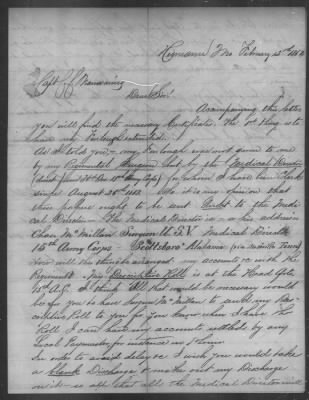 Hermann Mo February 15th 1864
Capt
Dear Sir!
Accompanying this letter
you will find the necessary Certificate. The 1st thing is to
have my Furlough extended.
As I told you my Furlough was not given to me
by my Regimental Surgeon but by the Medical Director
for whom I have been Clerk
since August 28th 1863. So it is my opinion that
these papers ought to be sent first to the Medi
cal Director. The Medical Director is his address
Chas McMillan Surgeon U.S.V. Medical Director
15th Army Corps Scottsboro Alabama (via Nashville Tenn)
How will this thing be arranged my accounts with the
Regiment. My Descriptive Roll is at the Head Qrts
15th A.C. I think all that would be necessary would
be for you to have Surgeon McMillan to send my Des
criptive Roll to you for you know when I have the
Roll I can have my accounts settled by any
Local Paymaster, for instance in St Louis
In order to avoid delay I wish you would take
a blank Discharge & make out my Discharge
with so that all the Medical Director will